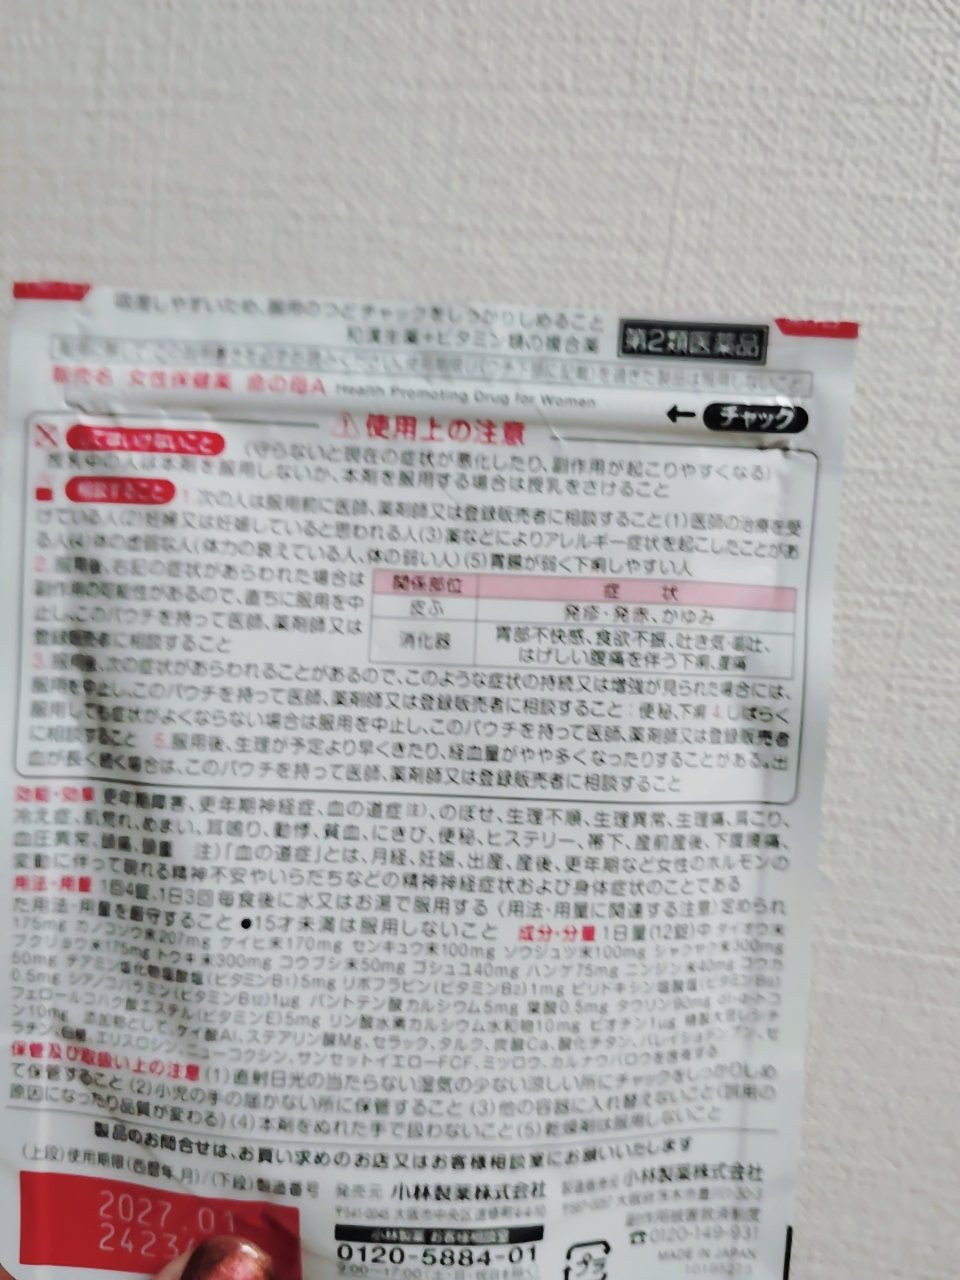 吸湿しやすいため、服用のつどチャックをしっかりしめること
和漢生薬+ビタミン類の複合薬
第2類医薬品
販売名 女性保健薬 命の母A Health Promoting Drug for Women
← チャック
⚠使用上の注意
してはいけないこと (守らないと現在の症状が悪化したり、副作用が起こりやすくなる)
授乳中の人は本剤を服用しないか、本剤を服用する場合は授乳をさけること
相談すること 1.次の人は服用前に医師、薬剤師又は登録販売者に相談すること(1)医師の治療を受
けている人(2)妊婦又は妊娠していると思われる人(3)薬などによりアレルギー症状を起こしたことがあ
る人(4)体の虚弱な人(体力の衰えている人、体の弱い人)(5)胃腸が弱く下痢しやすい人
2.服用後、右記の症状があらわれた場合は
副作用の可能性があるので、直ちに服用を中
止し、このパウチを持って医師、薬剤師又は
登録販売者に相談すること
関係部位 症 状
皮ふ 発疹・発赤、かゆみ
消化器 胃部不快感、食欲不振、吐き気・嘔吐、
はげしい腹痛を伴う下痢、腹痛
3.服用後、次の症状があらわれることがあるので、このような症状の持続又は増強が見られた場合には、
服用を中止し、このパウチを持って医師、薬剤師又は登録販売者に相談すること:便秘、下痢 4.しばらく
服用しても症状がよくならない場合は服用を中止し、このパウチを持って医師、薬剤師又は登録販売者
に相談すること 5.服用後、生理が予定より早くきたり、経血量がやや多くなったりすることがある。出
血が長く続く場合は、このパウチを持って医師、薬剤師又は登録販売者に相談すること
効能・効果 更年期障害、更年期神経症、血の道症注)、のぼせ、生理不順、生理異常、生理痛、肩こり、
冷え症、肌荒れ、めまい、耳鳴り、動悸、貧血、にきび、便秘、ヒステリー、帯下、産前産後、下腹腰痛、
血圧異常、頭痛、頭重 注)「血の道症」とは、月経、妊娠、出産、産後、更年期など女性のホルモンの
変動に伴って現れる精神不安やいらだちなどの精神神経症状および身体症状のことである
用法・用量 1回4錠、1日3回毎食後に水又はお湯で服用する (用法・用量に関連する注意)定められ
た用法・用量を厳守すること ●15才未満は服用しないこと 成分・分量 1日量(12錠)中 ダイオウ末
175mg カノコソウ末207mg ケイヒ末170mg センキュウ末100mg ソウジュツ末100mg シャクヤク末300mg
ブクリョウ末175mg トウキ末300mg コウブシ末50mg ゴシュユ40mg ハンゲ75mg ニンジン末40mg コウカ
50mg チアミン塩化物塩酸塩(ビタミンB1)5mg リボフラビン(ビタミンB2)1mg ピリドキシン塩酸塩(ビタミンB6)
0.5mg シアノコバラミン(ビタミンB12)1μg パントテン酸カルシウム5mg 葉酸0.5mg タウリン90mg dl-α-トコ
フェロールコハク酸エステル(ビタミンE)5mg リン酸水素カルシウム水和物10mg ビオチン1μg 精製大豆レシチ
ン10mg 添加物として、ケイ酸Al、ステアリン酸Mg、セラック、タルク、炭酸Ca、酸化チタン、バレイショデンプン、ゼ
ラチン、白糖、エリスロシン、ニューコクシン、サンセットイエローFCF、ミツロウ、カルナウバロウを含有する
保管及び取扱い上の注意 (1)直射日光の当たらない湿気の少ない涼しい所にチャックをしっかりしめ
て保管すること(2)小児の手の届かない所に保管すること(3)他の容器に入れ替えないこと(誤用の
原因になったり品質が変わる)(4)本剤をぬれた手で扱わないこと(5)乾燥剤は服用しないこと
製品のお問合せは、お買い求めのお店又はお客様相談室にお願いいたします
(上段)使用期限(西暦年、月)/(下段)製造番号
2027.01
2423
発売元 小林製薬株式会社
〒541-0045 大阪市中央区道修町4-4-10
小林製薬 お客様相談室
0120-5884-01
9:00~17:00(土・日・祝日を除く)
製造販売元 小林製薬株式会社
〒567-0057 大阪府茨木市豊川1-30-3
副作用被害救済制度
☎0120-149-931
MADE IN JAPAN
プラ